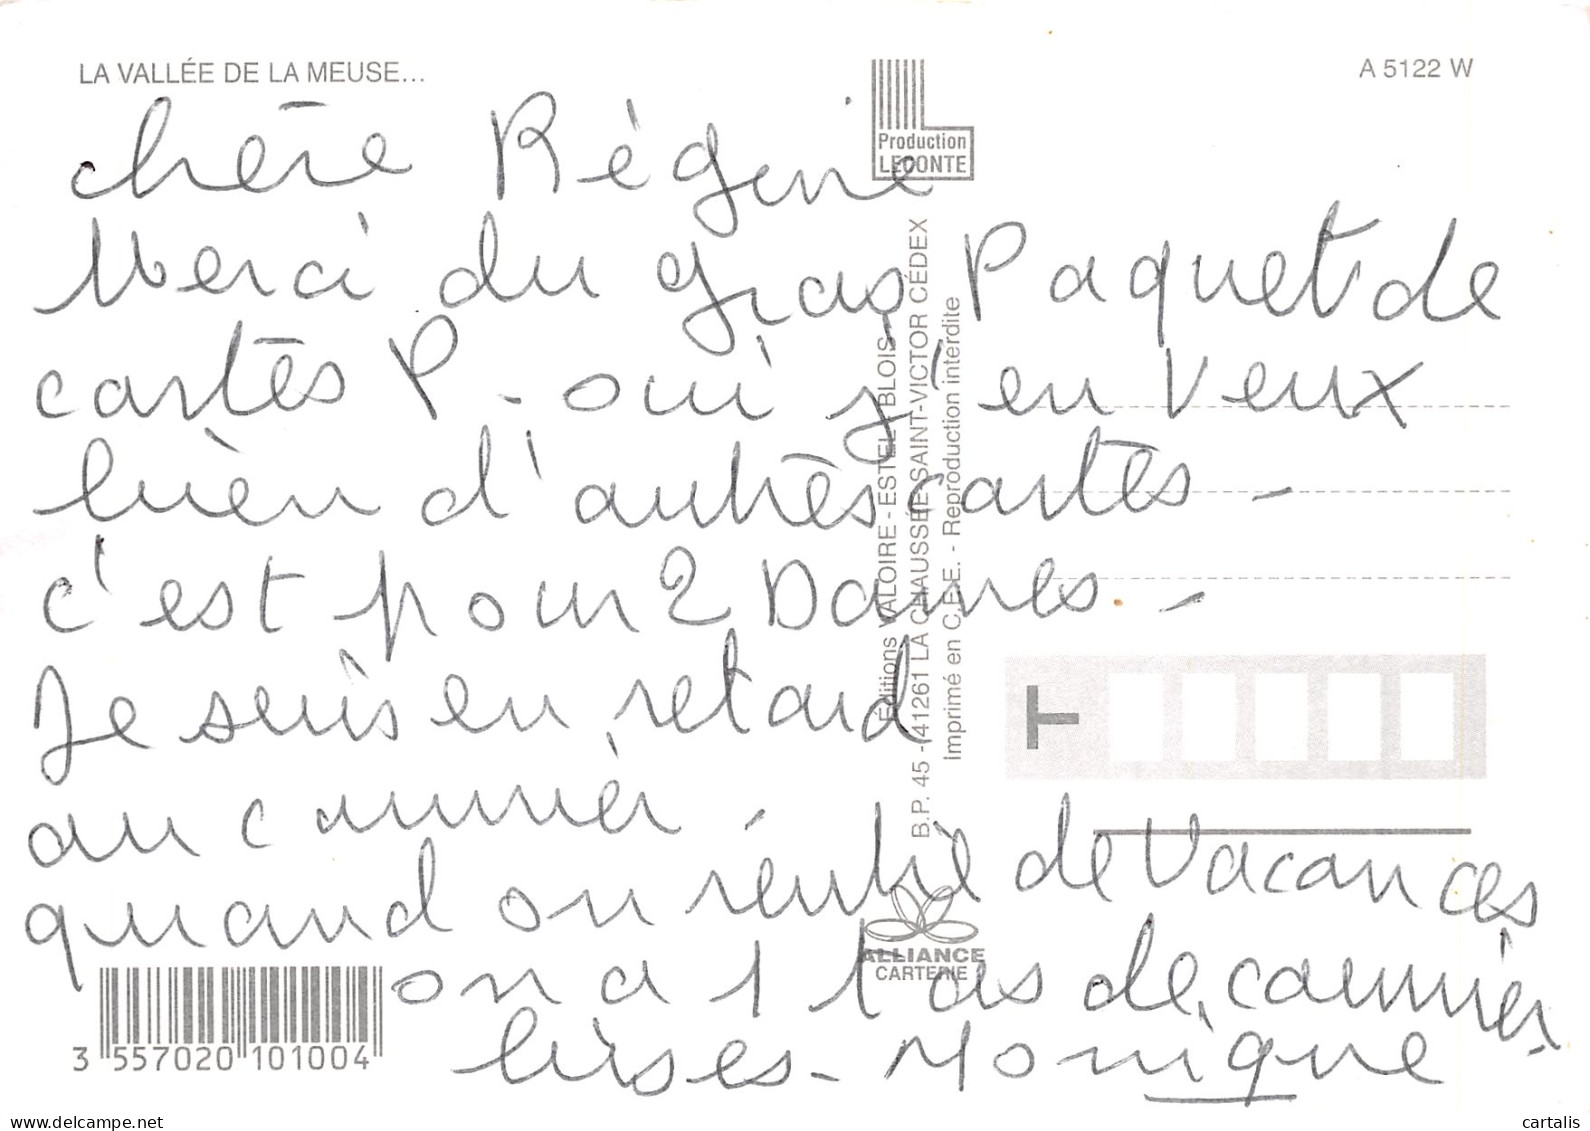 LA VALLÉE DE LA MEUSE...
A 5122 W
Production
LECONTE
chère Régine
Merci du gras Paquet de
cartes P - oui j'en veux
bien d'autres cartes -
c'est pour 2 Dames -
Je suis en retard
au courrier -
quand on rentre de Vacances
on a 1 tas de courrier
bises - Monique
Éditions VALOIRE - ESTEL - BLOIS
B.P. 45 - 41261 LA CHAUSSÉE-SAINT-VICTOR CÉDEX
Imprimé en C.E.E. - Reproduction interdite
ALLIANCE
CARTERIE
3 557020 101004
delcampe.net
cartalis